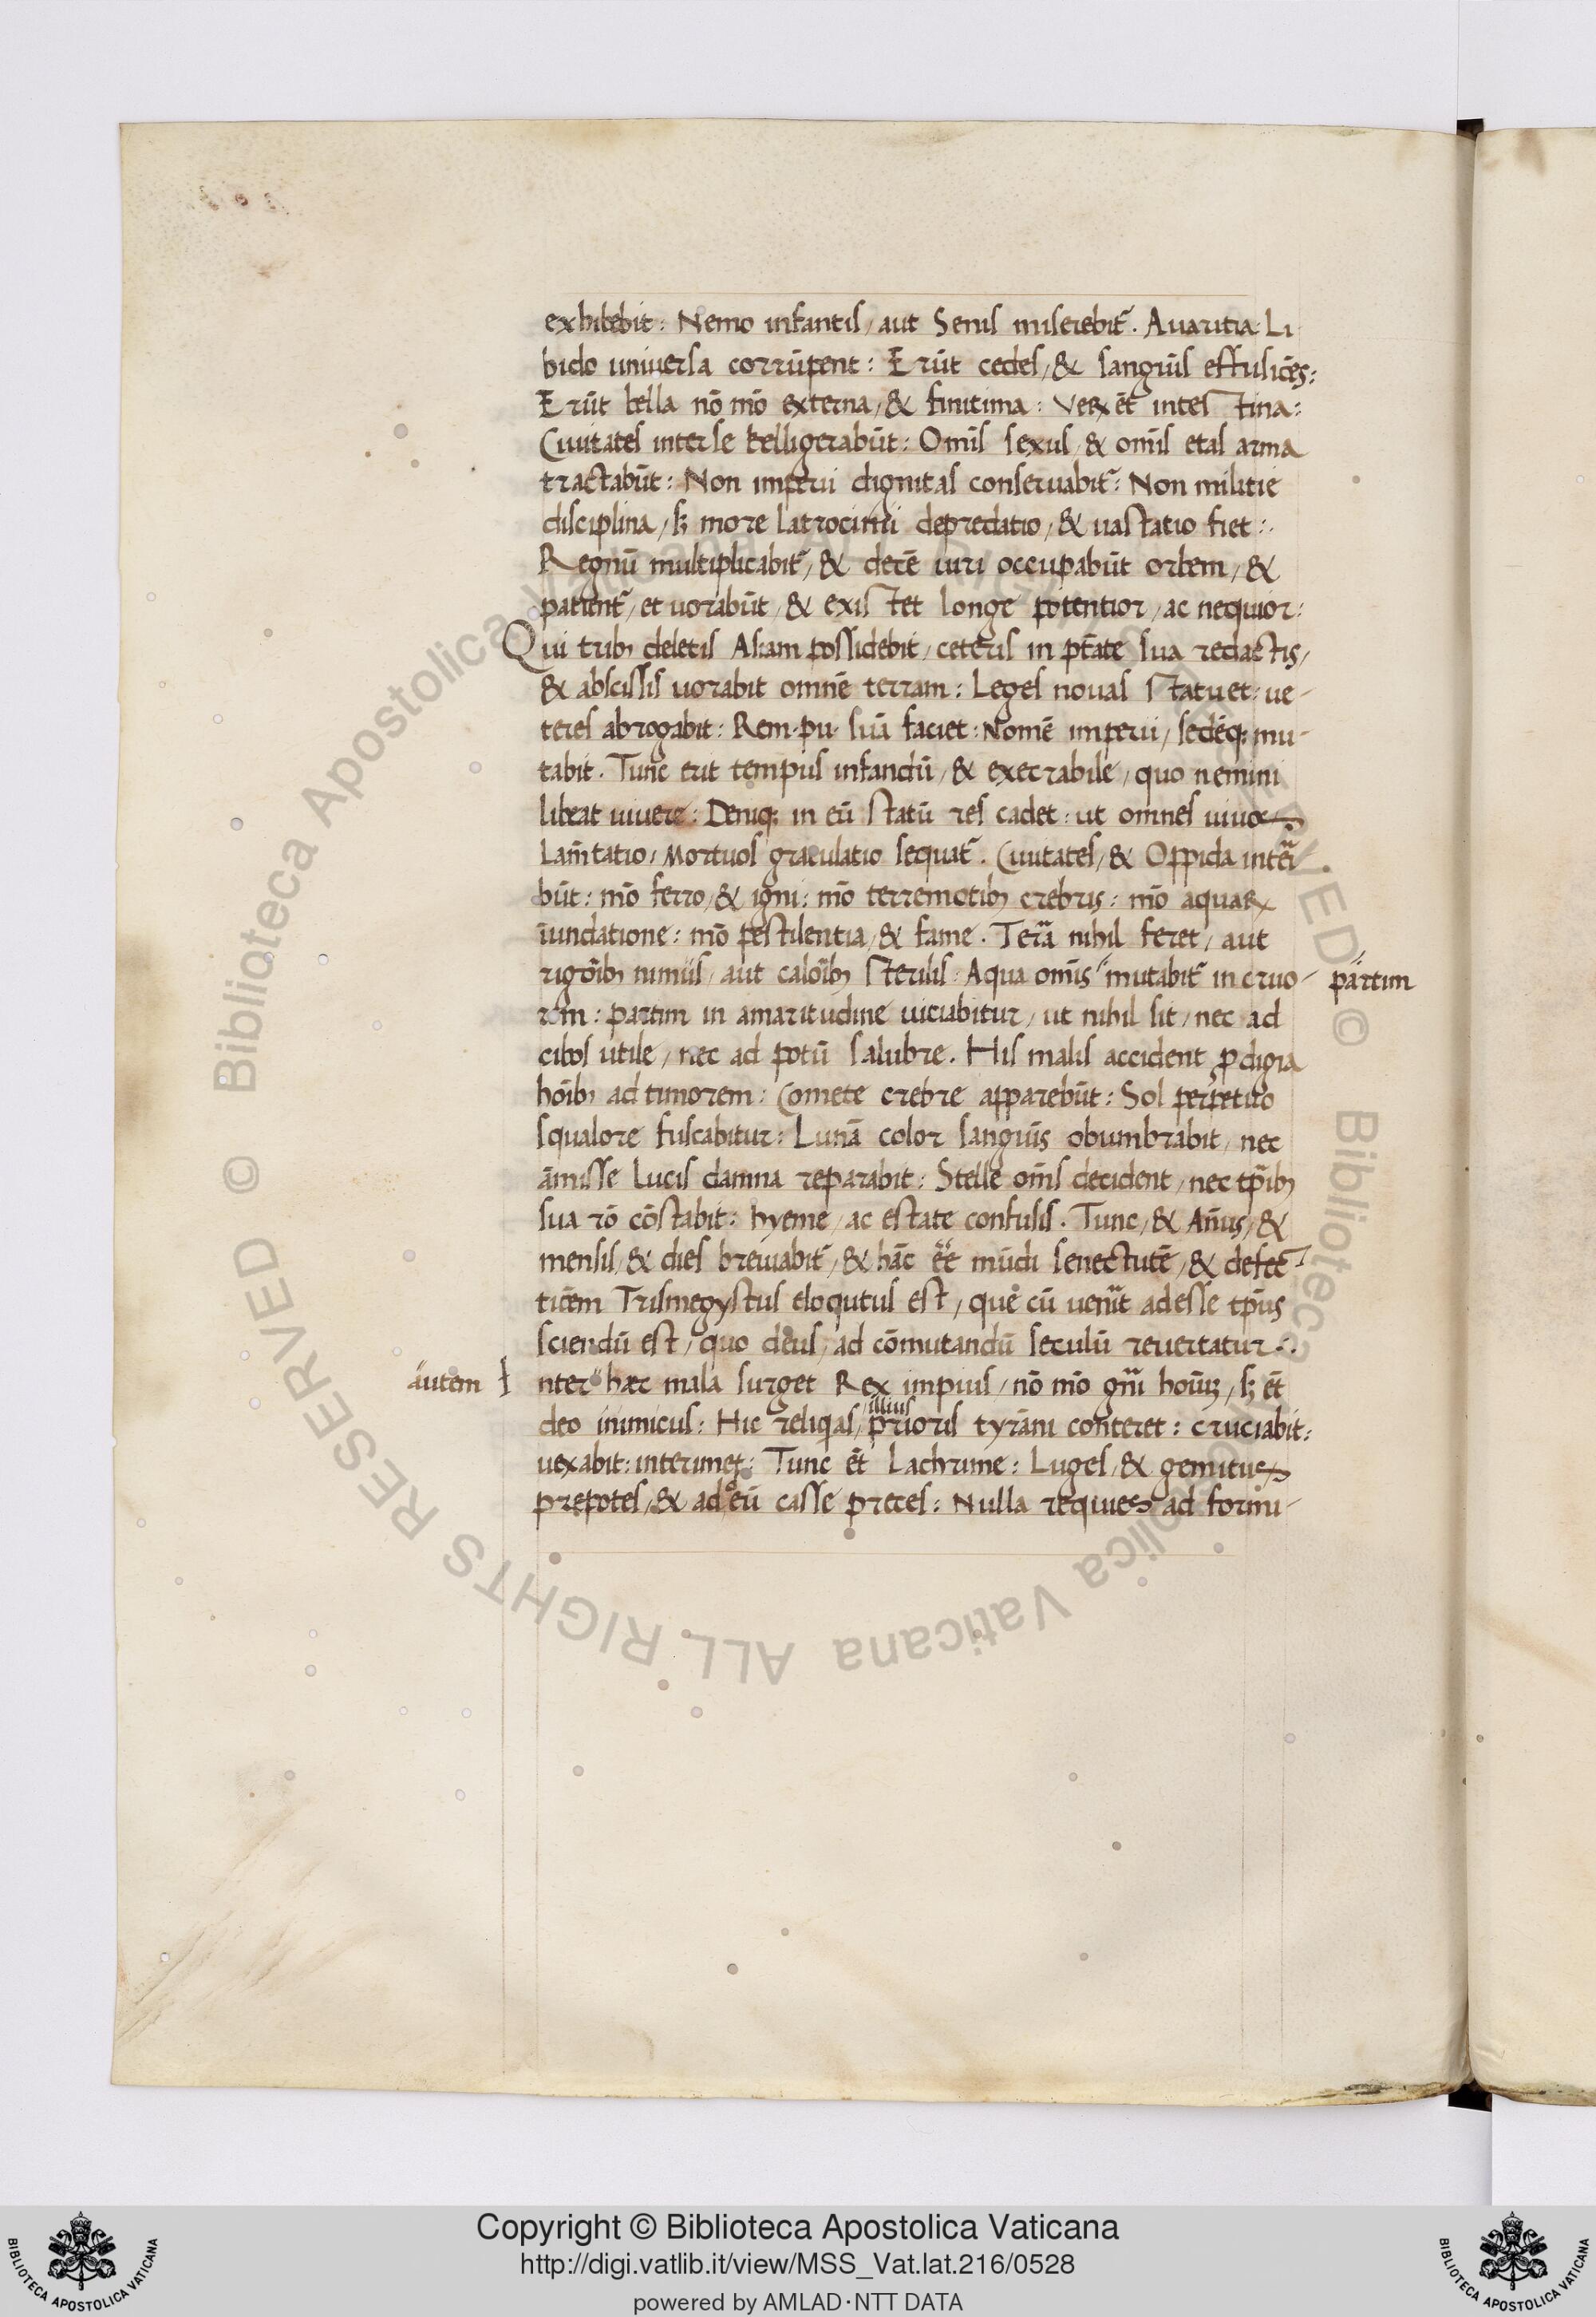 exhibebit: Nemo infantis/ aut Senis miserebit᷑. Auaritia: Li
bido uniuersa corrūpent: Erūt cedes/ & sanguīs effusiōes:
Erūt bella nō mō externa/ & finitima: Veꝝ et̄ intestina:
Ciuitates inter se belligerabūt: Omīs sexus/ & omīs etas arma
tractabūt: Non imperii dignitas conseruabit᷑: Non militie
disciplina/ sꝫ more Latrocinii depredatio/ & uastatio fiet:.
Regnū multiplicabit᷑/ & decē uiri occupabūt orbem/ &
patient᷑/ et uorabūt/ & existet longe potentior/ ac nequior:
Qui tribꝰ deletis Asiam possidebit/ ceteris in ptāte sua redactis/
& abscissis uorabit omnē terram: Leges nouas statuet: ue-
teres abrogabit: Rem·pu· suā faciet: Nomē imperii/ sedēqꝫ mu-
tabit. Tunc erit tempus infandū/ & execrabile/ quo nemini
libeat uiuere: Deniqꝫ in eū statū res cadet: ut omnes uiuos
Lam̄tatio/ Mortuos gratulatio sequat᷑. Ciuitates/ & Oppida interi
būt: mō ferro/ & igni: mō terremotibꝰ crebris: mō aquaꝝ
īundatione: mō pestilentia/ & fame. Terra nihil feret/ aut
rigoribꝰ nimiis/ aut caloribꝰ sterilis: Aqua omīs mutabit᷑ in cruo-
partim
rem: partim in amaritudine uiciabitur/ ut nihil sit/ nec ad
cibos utile/ nec ad potū salubre. His malis accident ꝓdigia
hoībꝰ ad timorem: Comete crebre apparebūt: Sol perpetuo
squalore fuscabitur: Lunā color sanguīs obumbrabit/ nec
āmisse Lucis damna reparabit: Stelle om̄s decident/ nec tp̄ibꝰ
sua rō cōstabit: hyeme/ ac estate confusis. Tunc/ & An̄us/ &
mensis/ & dies breuiabit᷑/ & hāc ēē mūdi senectutē/ & defec-
tiōem Trismegystus eloqutus est/ que cū uenerit adesse tp̄us
sciendū est/ quo deus/ ad cōmutandū seculū reuertatur:.
autem
Inter hæc mala surget Rex impius/ nō mō gn̄i hoīuꝫ/ sꝫ et̄
illius
deo inimicus: Hic reliqas/ prioris tyrāni conteret: cruciabit:
uexabit: interimet: Tunc et̄ Lachrime: Luges/ & gemitus
prepotes/ & ad eū casse preces: Nulla requies ad formi-
Copyright © Biblioteca Apostolica Vaticana
http://digi.vatlib.it/view/MSS_Vat.lat.216/0528
powered by AMLAD·NTT DATA